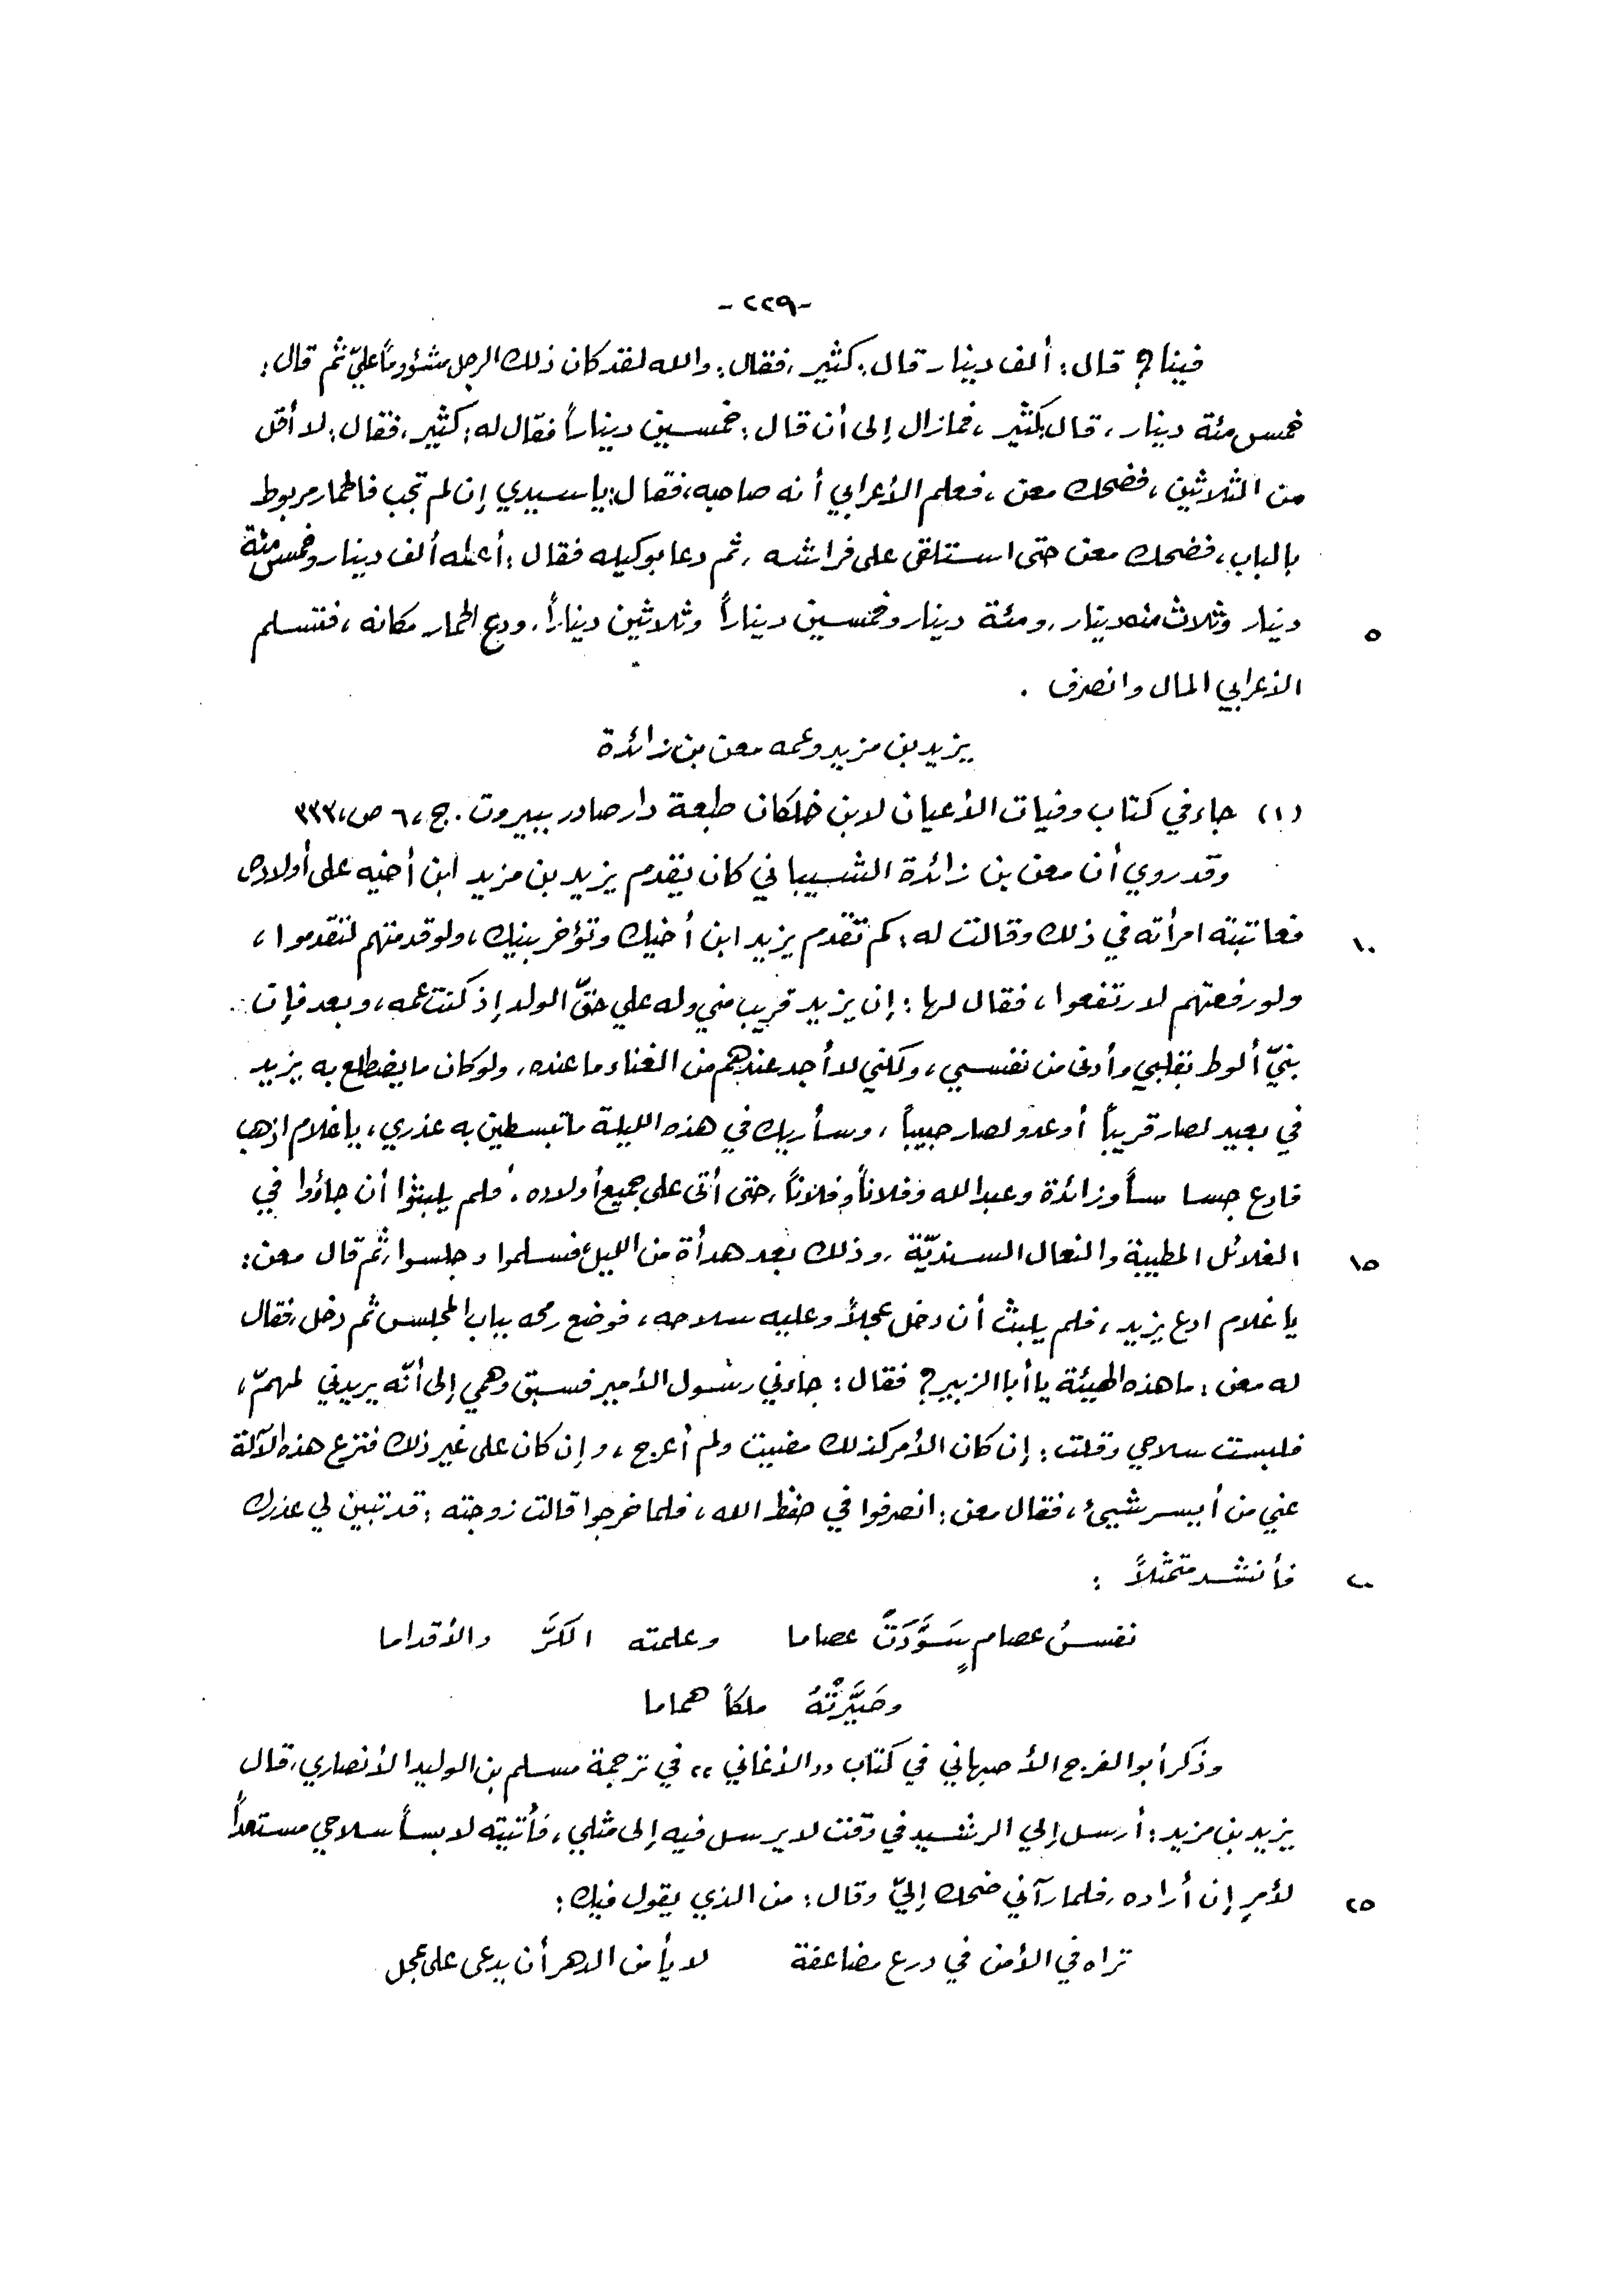 -٢٢٩-
فينا؟ قال: ألف دينار قال: كثير، فقال: والله لقد كان ذلك الرجل مشؤوماً عليّ ثم قال:
خمس مئة دينار، قال: كثير، فما زال إلى أن قال: خمسين ديناراً فقال له: كثير، فقال: لا أقل
من الثلاثين، فضحك معن، فعلم الأعرابي أنه صاحبه، فقال: يا سيدي إن لم تجب فالحمار مربوط
بالباب، فضحك معن حتى استلقى على فراشه، ثم دعا بوكيله فقال: أعطه ألف دينار وخمس مئة
٥ دينار وثلاث مئه دينار، ومئة دينار وخمسين ديناراً وثلاثين ديناراً، ودع الحمار مكانه، فتسلم
الأعرابي المال وانصرف .
يزيد بن مزيد وعمه معن بن زائدة
(١) جاء في كتاب وفيات الأعيان لابن خلكان طبعة دار صادر ببيروت. ج، ٦ ص، ٣٣٣
وقد روي أن معن بن زائدة الشيباني كان يقدم يزيد بن مزيد ابن أخيه على أولاده
١٠ فعاتبته امرأته في ذلك وقالت له: كم تقدم يزيد ابن أخيك وتؤخر بنيك، ولو قدمتهم لتقدموا،
ولو رفعتهم لارتفعوا، فقال لها: إن يزيد قريب مني وله علي حقّ الولد إذ كنت عمه، وبعد فإن
بنيّ ألوط بقلبي وأدنى من نفسي، ولكني لا أجد عندهم من الغناء ما عنده، ولو كان ما يضطلع به يزيد
في بعيد لصار قريباً أو عدو لصار حبيباً، وسأريك في هذه الليلة ما تبسطين به عذري، يا غلام اذهب
فادع جساساً وزائدة وعبد الله وفلاناً وفلاناً، حتى أتى على جميع أولاده، فلم يلبثوا أن جاؤوا في
١٥ الغلائل المطيبة والنعال السنديّة، وذلك بعد هدأة من الليل، فسلموا وجلسوا، ثم قال معن:
يا غلام ادع يزيد، فلم يلبث أن دخل عجلاً وعليه سلاحه، فوضع رمحه بباب المجلس ثم دخل، فقال
له معن: ما هذه الهيئة يا أبا الزبير؟ فقال: جاءني رسول الأمير فسبق وهمي إلى أنّه يريدني لمهمّ،
فلبست سلاحي وقلت: إن كان الأمر كذلك مضيت ولم أعرج، وإن كان على غير ذلك فنزع هذه الآلة
عني من أيسر شيئ، فقال معن: انصرفوا في حفظ الله، فلما خرجوا قالت زوجته: قد تبين لي عذرك
٢٠ فأنشد متمثلاً :
نفسُ عصامٍ سَوَّدَتْ عصاما وعلمته الكرَّ والأقداما
وصَيَّرتْهُ ملكاً هماما
وذكر أبو الفرج الأصبهاني في كتاب ,,الأغاني,, في ترجمة مسلم بن الوليد الأنصاري، قال
يزيد بن مزيد: أرسل إلي الرشيد في وقت لا يرسل فيه إلى مثلي، فأتيته لابساً سلاحي مستعداً
٢٥ لأمرٍ إن أراده، فلما رآني ضحك إليّ وقال: من الذي يقول فيك:
تراه في الأمن في درع مضاعفة لا يأمن الدهر أن يدعى على عجل